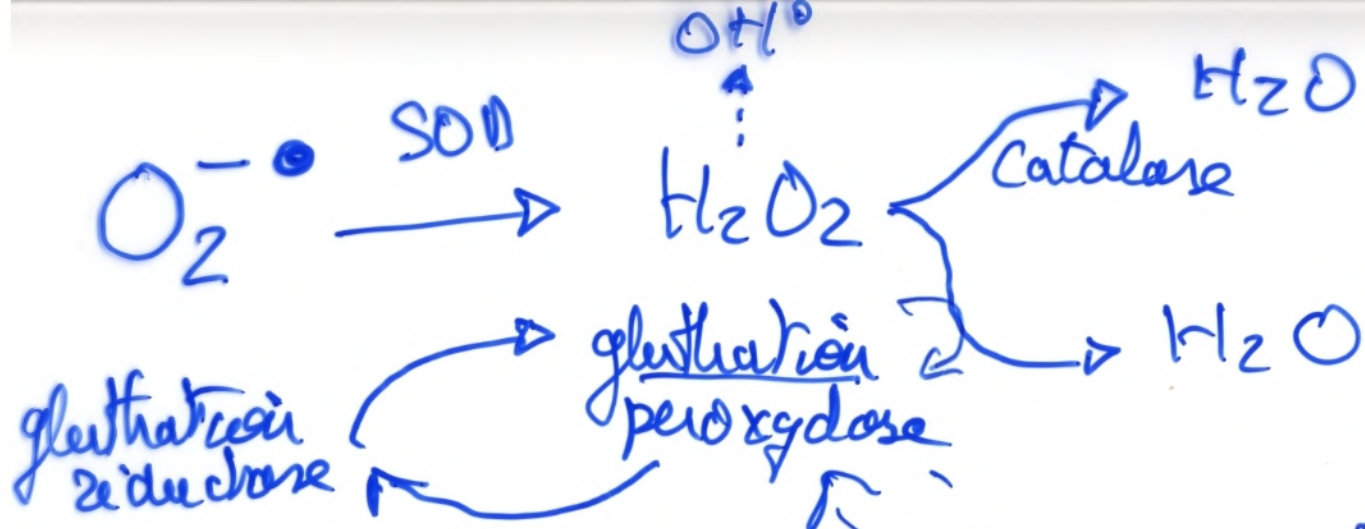 OH°
O₂⁻•
SOD
H₂O₂
Catalase
H₂O
H₂O
gluthation
peroxydase
gluthation
réductase